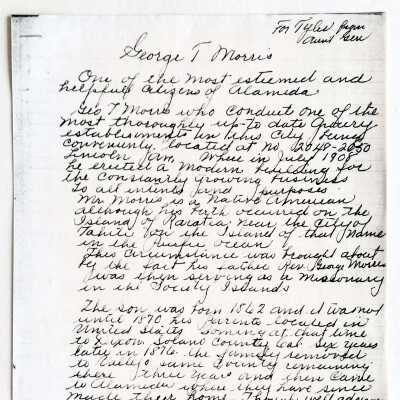 For Tyler from
Aunt Gen
George T Morris
One of the most estiemed and
helpfull Citizens of Alameda
Geo T Morris who conduct one of the
most thoroughly up-to date
establishments in this City being
conveniently located at No 2048-2050
Lincoln Ave. Where in July 1908
he erected a modern building for
the constantly growing business
To all intents and purposes
Mr Morris is a Native American
although his birth ocurred on the
Island of near the City of
Tahiti on the Island of that Name
in the Pacific ocean
This Circumstance was brought about
by the fact his father Rev. George Morris
was then serving as a Missionary
in the Society Islands
The son was born 1862 and it was not
until 1870 his parents located in
United States coming at that time
to Dixon Solano County Cal. Six years
later in 1876 the family removed
to Vallejo same County remaining
there three years and then came
to Alameda where they have since
made their home. Though well